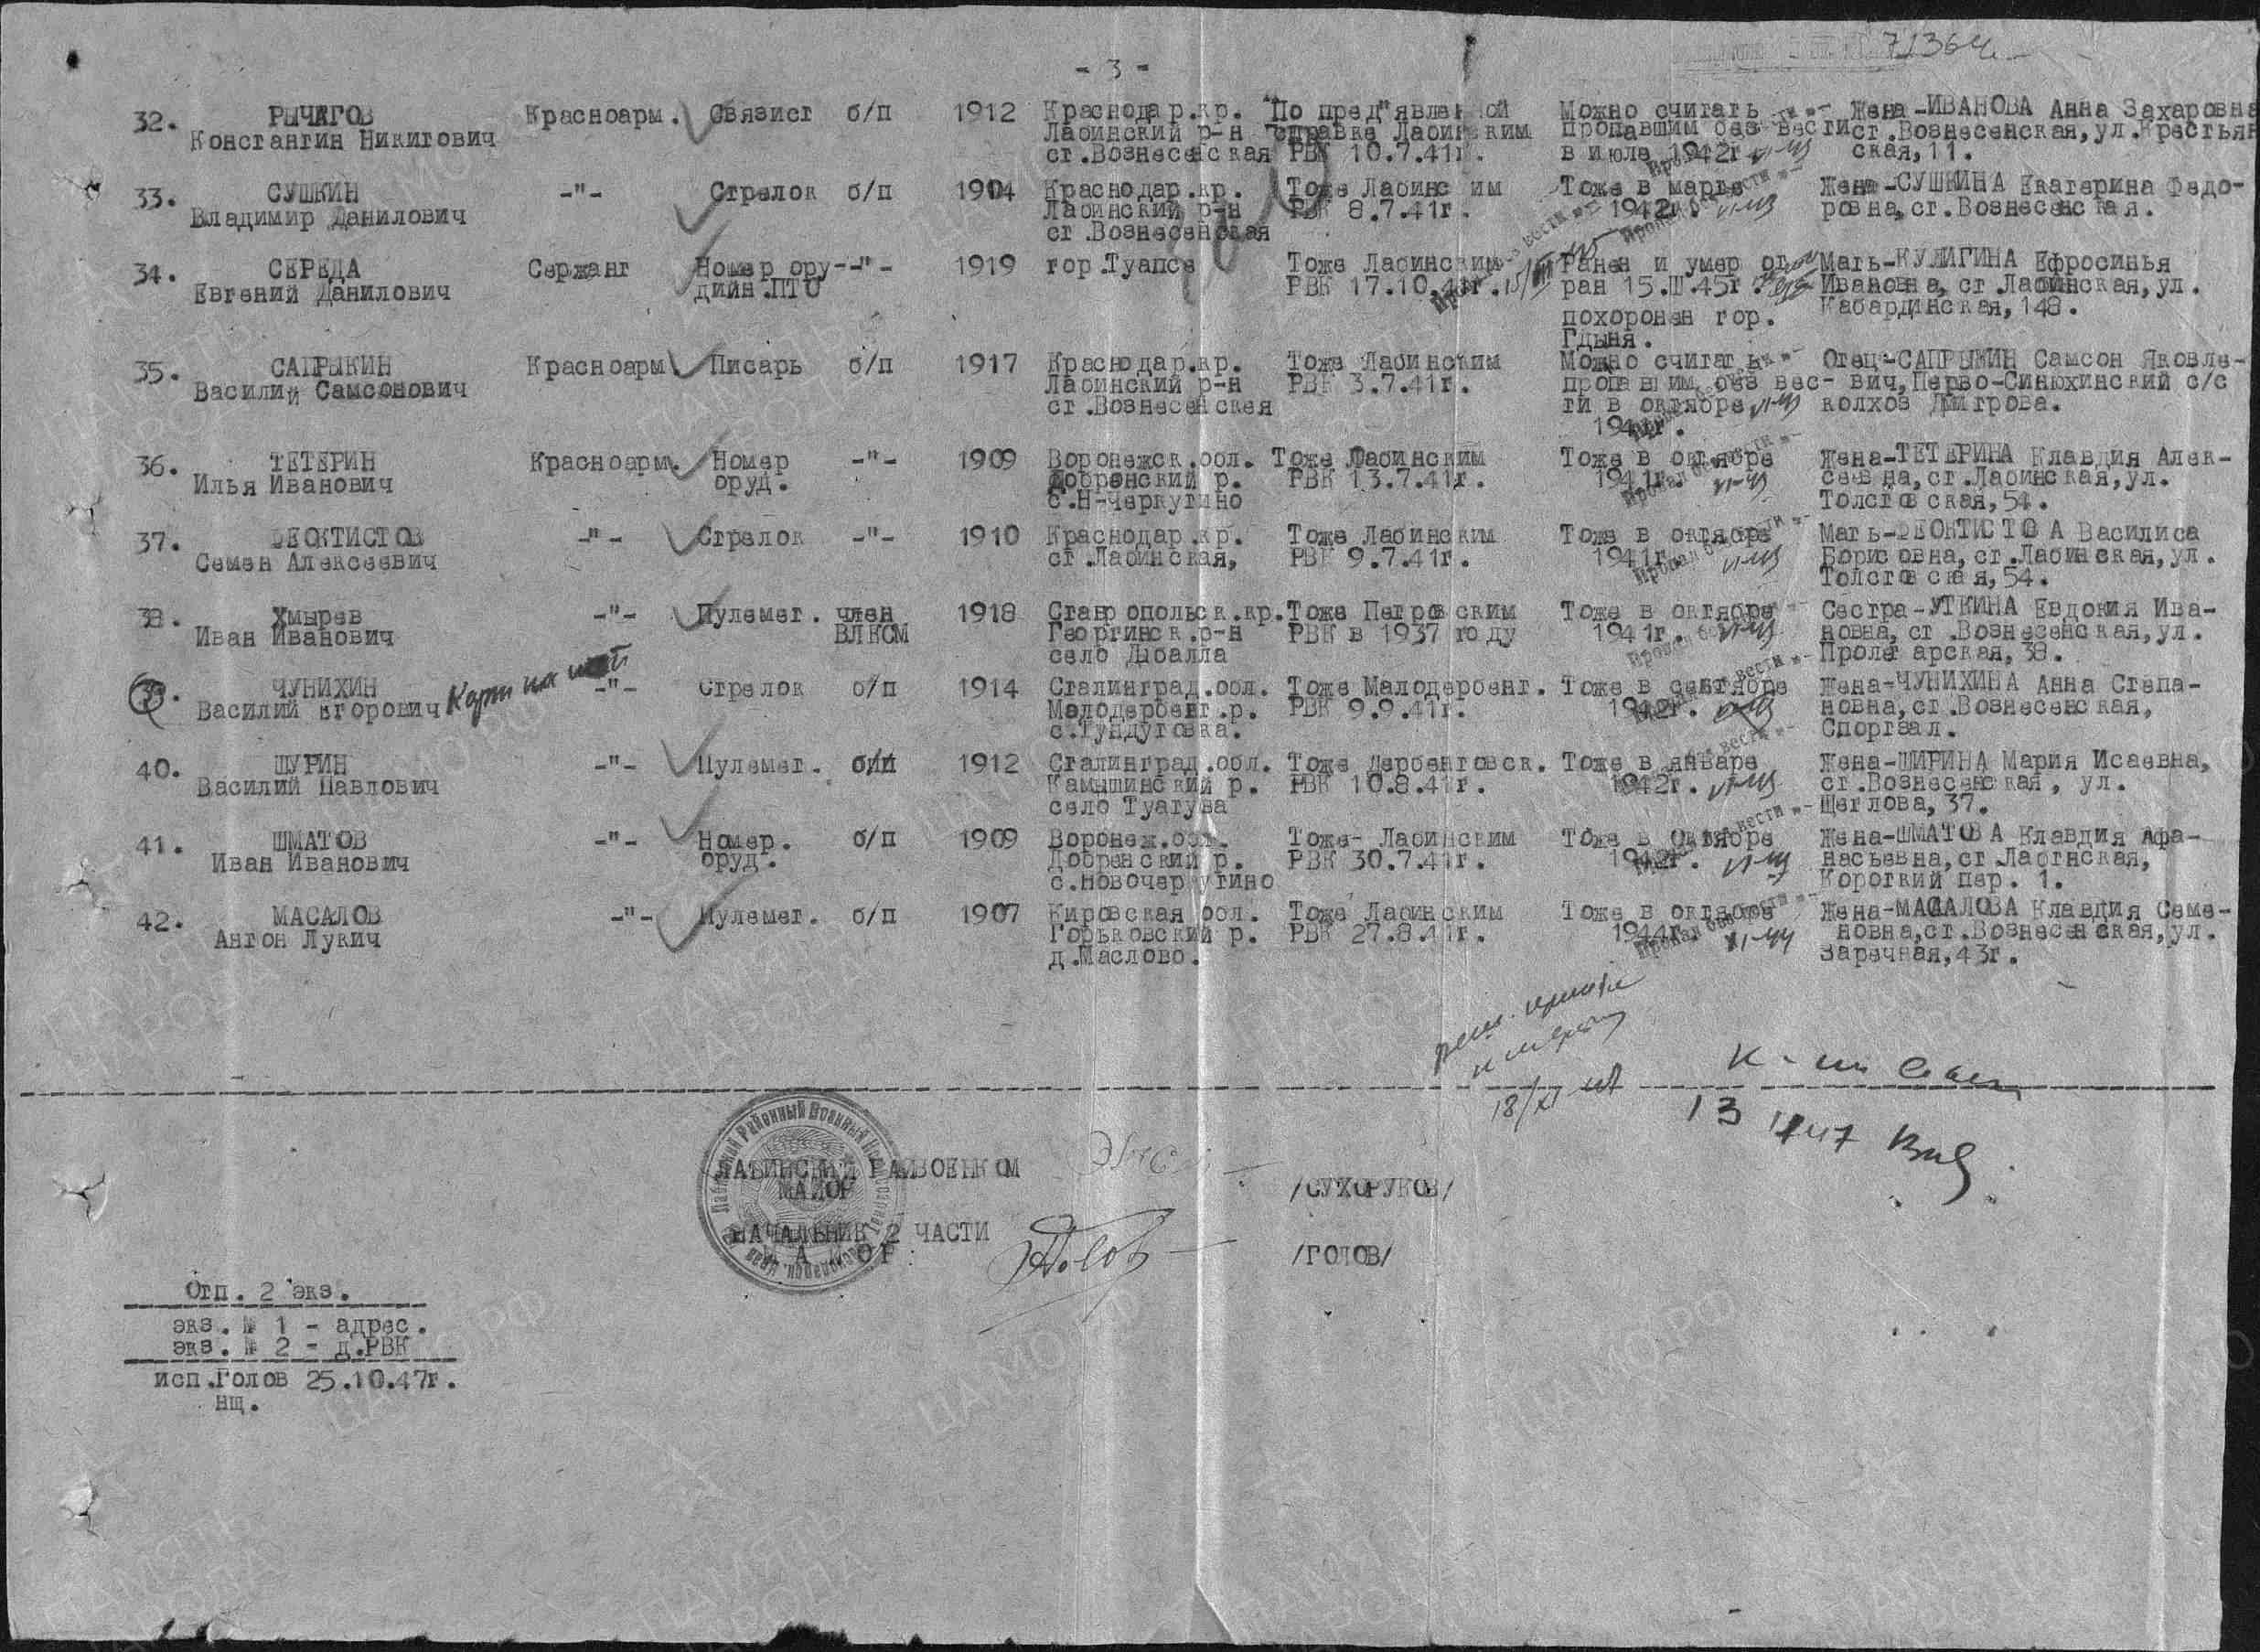 71364
- 3 -
32. РЫЧАГОВ Константин Никитович Красноарм. Связист б/п 1912 Краснодар.кр. Лабинский р-н ст.Вознесенская По пред"явленной справке Лабинским РВК 10.7.41г. Можно считать пропавшим без вести в июле 1942г Жена-ИВАНОВА Анна Захаровна ст.Вознесенская, ул.Крестьянская, 11.
33. СУШКИН Владимир Данилович -"- Стрелок б/п 1904 Краснодар.кр. Лабинский р-н ст.Вознесенская Тоже Лабинс им РВК 8.7.41г. Тоже в марте 1942г. Жена-СУШКИНА Екатерина Федоровна, ст.Вознесенская.
34. СЕРЕДА Евгений Данилович Сержант Номер орудийн.ПТО -"- 1919 гор.Туапсе Тоже Лабинским РВК 17.10.41г. Ранен и умер от ран 15.III.45г. похоронен гор. Гдыня. Мать-КУЛИГИНА Ефросинья Ивановна, ст.Лабинская, ул. Кабардинская, 148.
35. САПРЫКИН Василий Самсонович Красноарм Писарь б/п 1917 Краснодар.кр. Лабинский р-н ст.Вознесенская Тоже Лабинским РВК 3.7.41г. Можно считать пропавшим без вести в октябре 1941г. Отец-САПРЫКИН Самсон Яковлевич, Перво-Синюхинский с/с колхоз Дмитрова.
36. ТЕТЕРИН Илья Иванович Красноарм. Номер оруд. -"- 1909 Воронежск.обл. Добренский р. с.Н-Черкутино Тоже Лабинским РВК 13.7.41г. Тоже в октябре 1941г. Жена-ТЕТЕРИНА Клавдия Алексевна, ст.Лабинская, ул. Толстовская, 54.
37. ФЕОКТИСТОВ Семен Алексеевич -"- Стрелок -"- 1910 Краснодар.кр. ст.Лабинская, Тоже Лабинским РВК 9.7.41г. Тоже в октябре 1941г. Мать-ФЕОКТИСТО А Василиса Борисовна, ст.Лабинская, ул. Толстовская, 54.
38. Хмырев Иван Иванович -"- Пулемет. член ВЛКСМ 1918 Ставропольск.кр. Георгинск.р-н село Дибалла Тоже Петровским РВК в 1937 году Тоже в октябре 1941г. Сестра-УТКИНА Евдокия Ивановна, ст.Вознесенская, ул. Пролетарская, 38.
39. ЧУНИХИН Василий Егорович -"- Стрелок б/п 1914 Сталинград.обл. Малодербент.р. с.Тундутовка. Тоже Малодербент. РВК 9.9.41г. Тоже в сентябре 1942г. Жена-ЧУНИХИНА Анна Степановна, ст.Вознесенская, Спортзал.
40. ШУРИН Василий Павлович -"- Пулемет. б/п 1912 Сталинград.обл. Камышинский р. село Туатува Тоже Дербентовск. РВК 10.8.41г. Тоже в январе 1942г. Жена-ШИРИНА Мария Исаевна, ст.Вознесенская, ул. Щеглова, 37.
41. ШМАТОВ Иван Иванович -"- Номер. оруд. б/п 1909 Воронеж.обл. Добренский р. с.Новочеркутино Тоже-Лабинским РВК 30.7.41г. Тоже в октябре 1942г. Жена-ШМАТОВА Клавдия Афанасьевна, ст.Лабинская, Короткий пер. 1.
42. МАСАЛОВ Антон Лукич -"- Пулемет. б/п 1907 Кировская обл. Горьковский р. д.Маслово. Тоже Лабинским РВК 27.8.41г. Тоже в октябре 1944г. Жена-МАСАЛОВА Клавдия Семеновна, ст.Вознесенская, ул. Заречная, 43г.
18/XI
ЛАБИНСКИЙ РАЙВОЕНКОМ
МАЙОР /СУХОРУКОВ/
НАЧАЛЬНИК 2 ЧАСТИ
М А Й О Р: /ГОЛОВ/
Отп. 2 экз.
экз. № 1 - адрес.
экз. № 2 - д.РВК
исп.Голов 25.10.47г.
нщ.